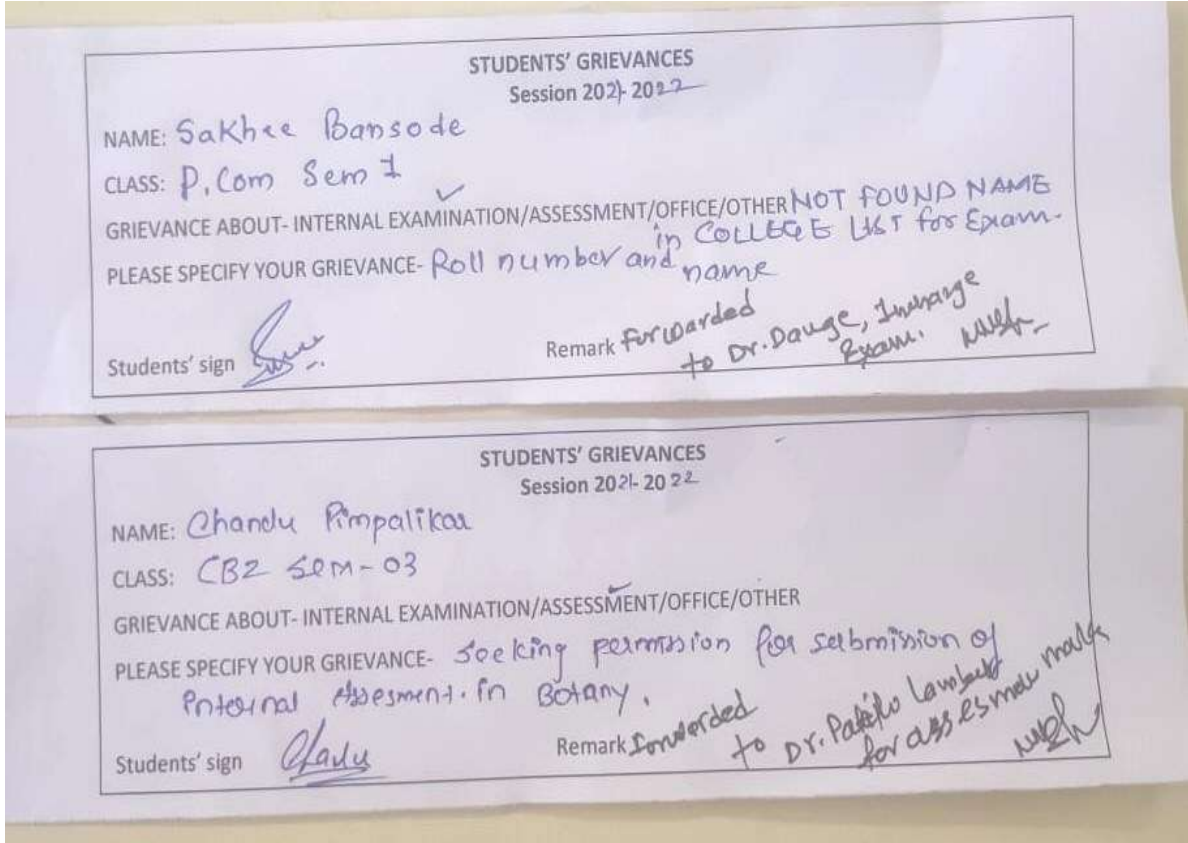 STUDENTS' GRIEVANCES
Session 2021-2022
NAME: Sakhee Bansode
CLASS: P.Com Sem I
GRIEVANCE ABOUT- INTERNAL EXAMINATION/ASSESSMENT/OFFICE/OTHER NOT FOUND NAME
in COLLEGE LIST for Exam.
PLEASE SPECIFY YOUR GRIEVANCE- Roll number and name
Students' sign
Remark forwarded
to Dr. Dauge, Incharge
Exam.
STUDENTS' GRIEVANCES
Session 2021-2022
NAME: Chandu Pimpalikar
CLASS: CBZ Sem-03
GRIEVANCE ABOUT- INTERNAL EXAMINATION/ASSESSMENT/OFFICE/OTHER
PLEASE SPECIFY YOUR GRIEVANCE- Seeking permission for submission of
Internal Assesment. in Botany.
Students' sign
Remark Forwarded
to Dr.
for assesment marks